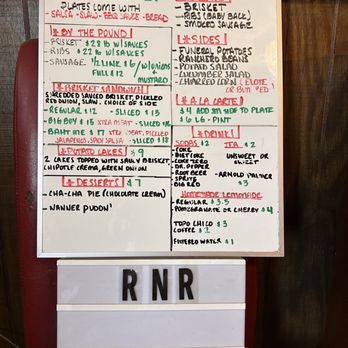 PLATES COME WITH
- SALSA - SLAW - BBQ SAUCE - BREAD
* BY THE POUND!
BRISKET $28 lb W/SAUCES
RIBS $22 lb W/SAUCES
SAUSAGE 1/2 LINK $6 / W/ONIONS
FULL $12 MUSTARD
* BRISKET SANDWICH!
SHREDDED SAUCED BRISKET, PICKLED
RED ONION, SLAW. CHOICE OF SIDE
- REGULAR $12
- BIG BOY $15 XTRA MEAT
- BAHT ME $17 XTRA MEAT, PICKLED
JALAPENOS, SPICY SALSA
* POTATO CAKES! $9
2 CAKES TOPPED WITH BRISKET,
CHIPOTLE CREMA, GREEN ONION
* DESSERTS! $7
- CHA-CHA PIE (CHOCOLATE CREAM)
- NANNER PUDDN'
- BRISKET
- RIBS (BABY BACK)
- SMOKED SAUSAGE
* SIDES!
- FUNERAL POTATOES
- RANCHERO BEANS
- POTATO SALAD
- CUCUMBER SALAD
- CHARRED CORN (ELOTE
OR BUTTERED)
* A LA CARTE!
$4 ADD SM SIDE TO PLATE
$6 LG - PINT
* DRINK!
SODAS $2
- COKE
- DIET COKE
- COKE ZERO
- DR. PEPPER
- ROOT BEER
- SPRITE
- BIG RED
TEA $2
UNSWEET OR
SWEET
- ARNOLD PALMER
$3
HOMEMADE LEMONADE
- REGULAR $3.5
- POMEGRANATE OR CHERRY $4
TOPO CHICO $3
COFFEE $2
FILTERED WATER $1
RNR